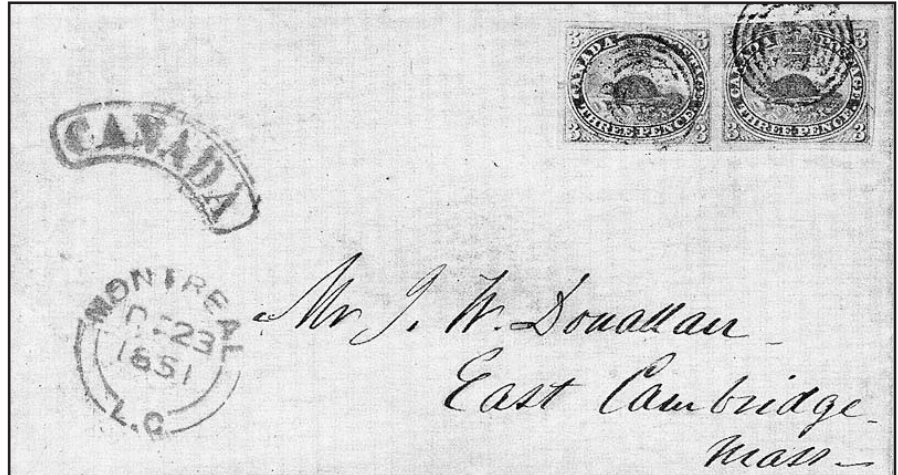 3 CANADA POSTAGE 3
3 THREE PENCE 3
3 CANADA POSTAGE 3
3 THREE PENCE 3
CANADA
MONTREAL
DE 23
1851
L.C
Mr J. W.
East Cambridge
Mass